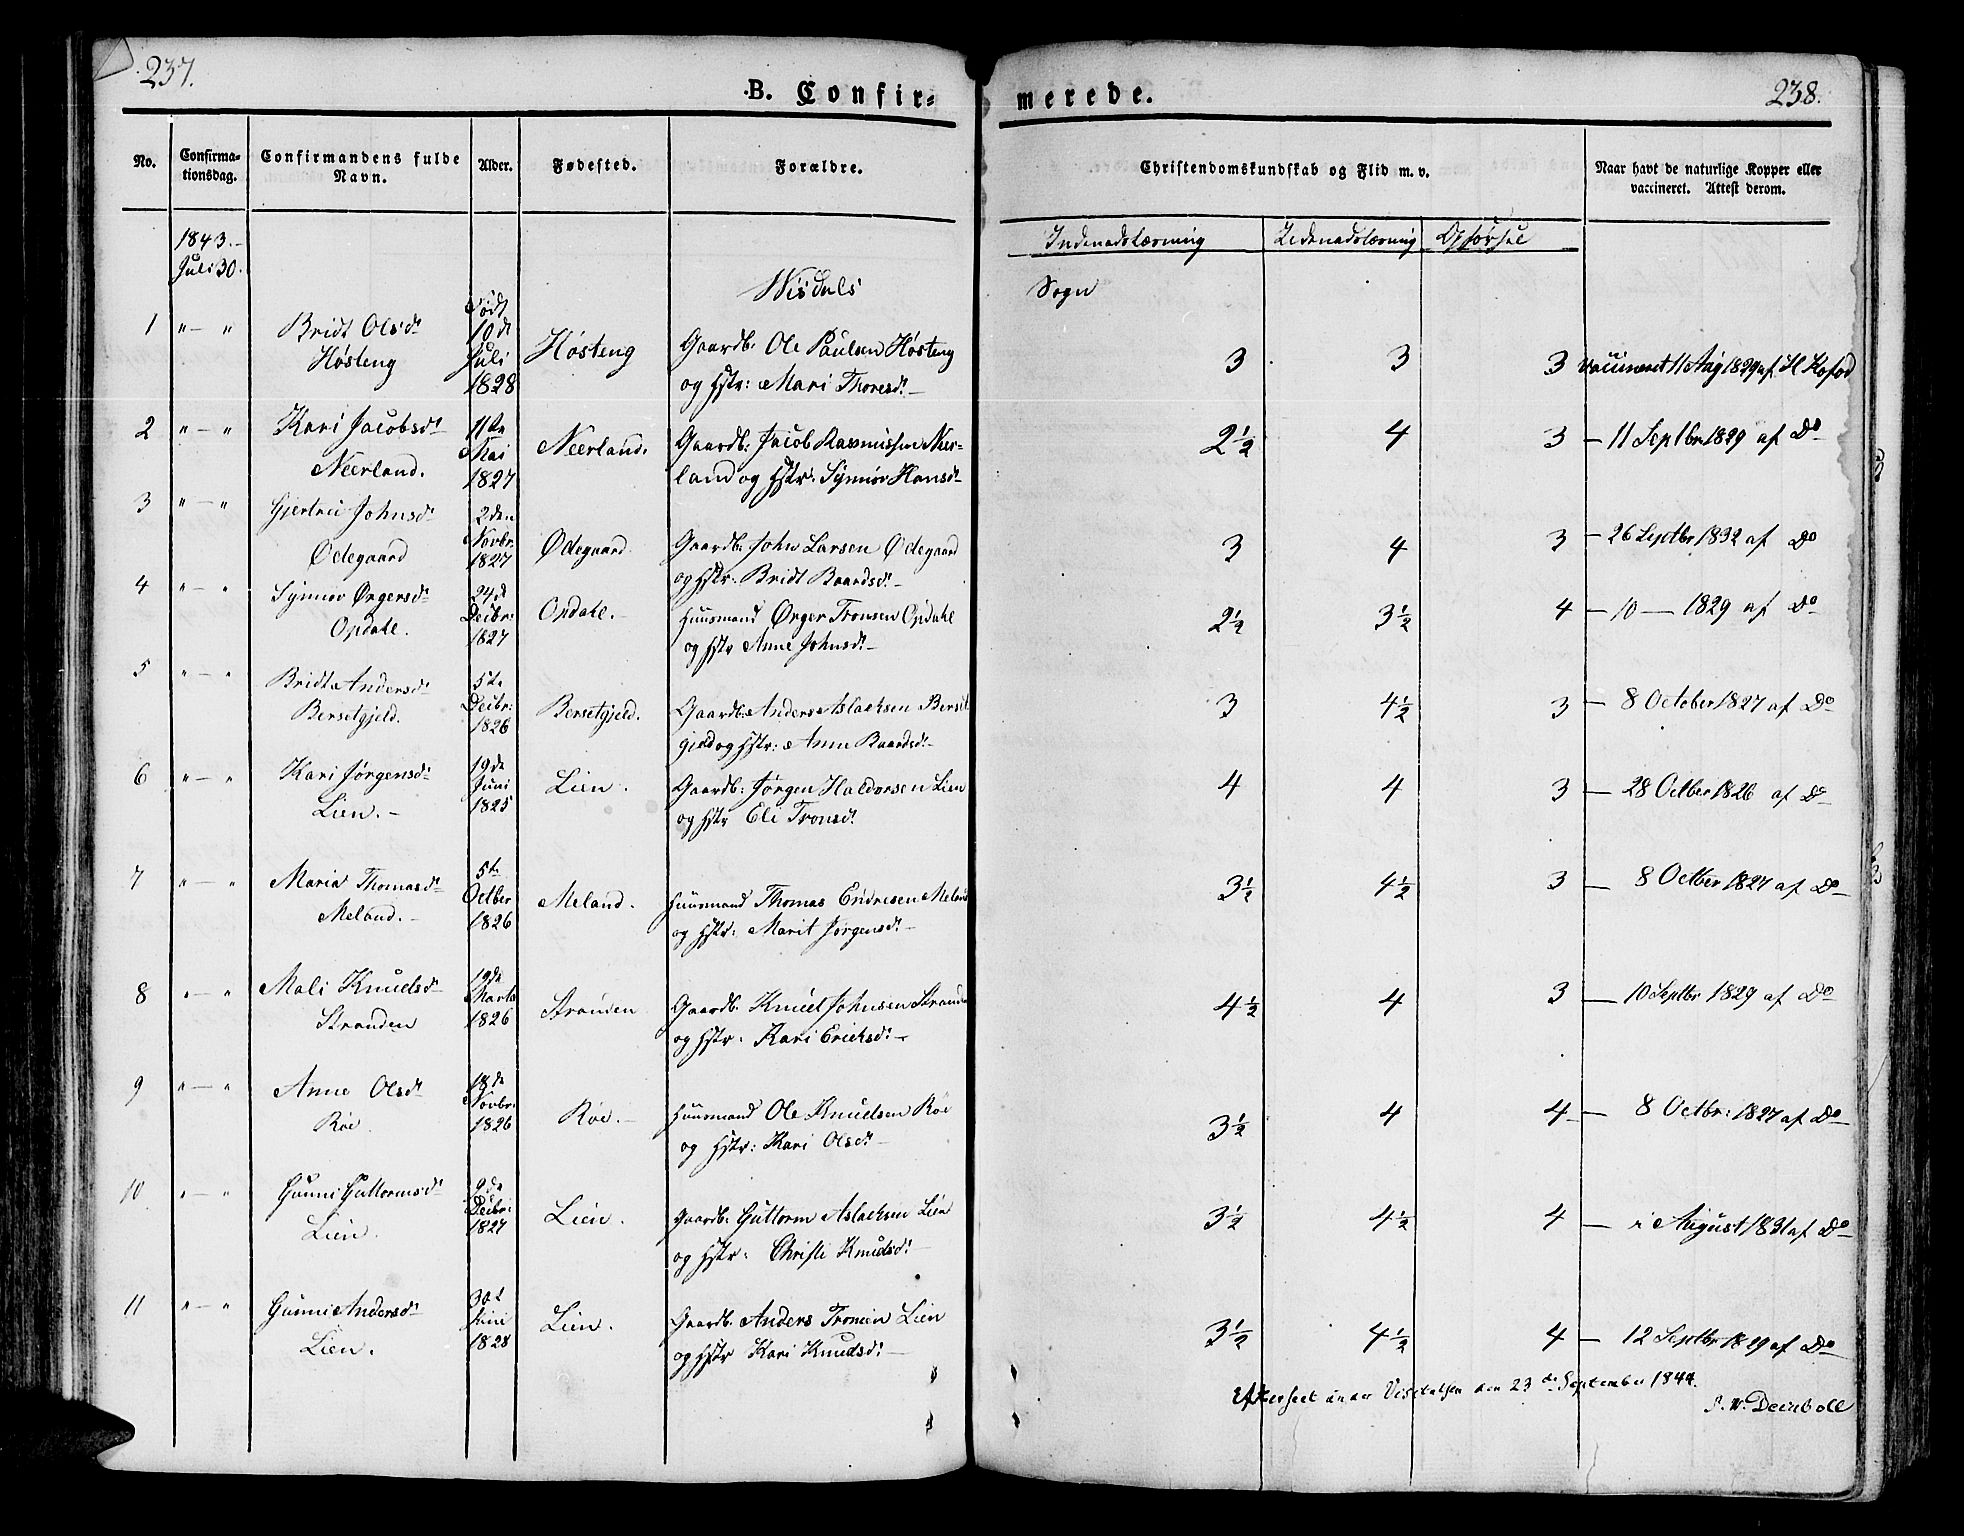 237.
B. Confir=
merede.
238.
No.
Confirma-
tionsdag.
Confirmandens fulde
Navn.
Alder.
Fødested.
Forældre.
Christendomskundskab og Flid m. v.
Naar havt de naturlige Kopper eller
vaccineret. Attest derom.
Indenadslæsning Udenadslæsning Opførsel
1843.
Juli 30.
Wisdals Sogn
1 " — " Bridt Olsd: Høsteng
Født 10d Juli 1828
Høsteng
Gaardb: Ole Paulsen Høsteng
og Hstr: Mari Thoresd:
3 3 3 vaccineret 11 Aug 1829 af H Kofod
2 " — " Kari Jacobsd: Neerland.
11te Mai 1827
Neerland.
Gaardb: Jacob Rasmussen Neer-
land og Hstr: Synnøv Hansd:
2½ 4 3 — 11 Septbr 1829 af Do
3 " — " Gjertru Johnsd: Ødegaard
2den Novbr. 1827
Ødegaard
Gaardb: John Larsen Ødegaard
og Hstr: Bridt Baardsd: —
3 4 3 — 26 Septbr 1832 af Do
4 " — " Synnøv Ørgersd: Opdahl.
24d Decbr: 1827
Opdahl.
Huusmand Ørger Tronsen Opdahl
og Hstr Anne Johnsd: —
2½ 3½ 4 — 10 — 1829 af Do
5 " — " Bridt Andersd: Bersetgjeld.
5te Decbr: 1826
Bersetgjeld.
Gaardb: Anders Aslaksen Berset
gjeld og Hstr: Anne Baardsd: —
3 4½ 3 — 8 October 1827 af Do
6 " — " Kari Jørgensd: Lien. —
19de Juni 1825
Lien.
Gaardb: Jørgen Haldorsen Lien
og Hstr Eli Tronsd:
4 4 3 — 28 Octber 1826 af Do
7 " — " Maria Thomasd: Meland. —
5te Octber 1826
Meland.
Huusmand Thomas Endresen Meland
og Hstr: Marit Jørgensd: —
3½ 4½ 3 — 8 Octber 1827 af Do
8 " — " Mali Knudsd: Stranden
19de Marts 1826
Stranden
Gaardb. Knud Johnsen Stranden
og Hstr: Kari Ericksd: —
4½ 4 3 — 10 Septbr 1829 af Do
9 " — " Anne Olsd: Röe.
18de Novbr: 1826
Röe. —
Huusmand Ole Knudsen Röe
og Hstr: Kari Olsd: —
3½ 4 4 — 8 Octbr: 1827 af Do
10 " — " Gunni Guttormsd: Lien.
9de Decbr: 1827
Lien.
Gaardb: Guttorm Aslaksen Lien
og Hstr: Christi Knudsd: —
3½ 4½ 4 — i August 1831 af Do
11 " — " Gunni Andersd: Lien.
30t Juni 1828
Lien.
Gaardb. Anders Tronsen Lien
og Hstr Kari Knudsd: —
3½ 4½ 4 — 12 Septbr 1829 af Do
Efterseet under Visitatsen den 23de September 1844.
Deinboll